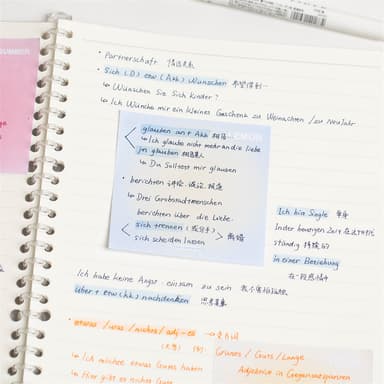 • Partnerschaft 情侣关系
• Sich (D) etw (Akk) wünschen 希望得到…
↳ Wünschen Sie Sich Kinder?
↳ Ich Wünche mir ein kleines Geschenk zu Weinachten / zu Neujahr
glauben an + Akk 相信…
↳ Ich glaube nicht mehr an die liebe
jn glauben 相信某人
↳ Du Solltest mir glauben
• berichten 讲给, 谈论, 报道
↳ Drei Grobstadtmenschen
berichten über die Liebe.
sich trennen (或分手)
sich scheiden lassen
离婚
Ich bin Single 单身
In der heutigen Zeit 在这个时代
ständig 持续的
in einer Beziehung
在一段感情中
Ich habe keine Angst, einsam zu sein 我不害怕孤独
über + etw (Akk) nachdenken 思考某事
• etwas / was / nichts / adj - es
↳ Ich möchte etwas Gutes haben
↳ Hier gibt es nichts Gutes
Grünes / Gutes / Lange
Adjektive in Gegensatzpaaren